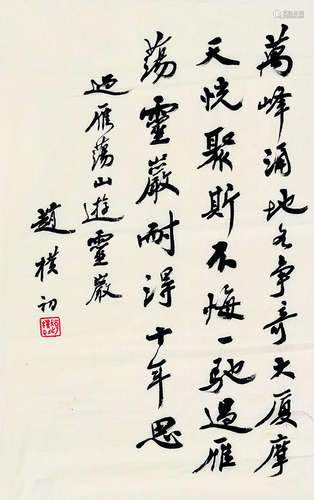 萬峰涌地各爭奇大廈摩
天恍聚斯不悔一馳過雁
蕩靈巖耐得十年思
過雁蕩山遊靈巖
趙樸初